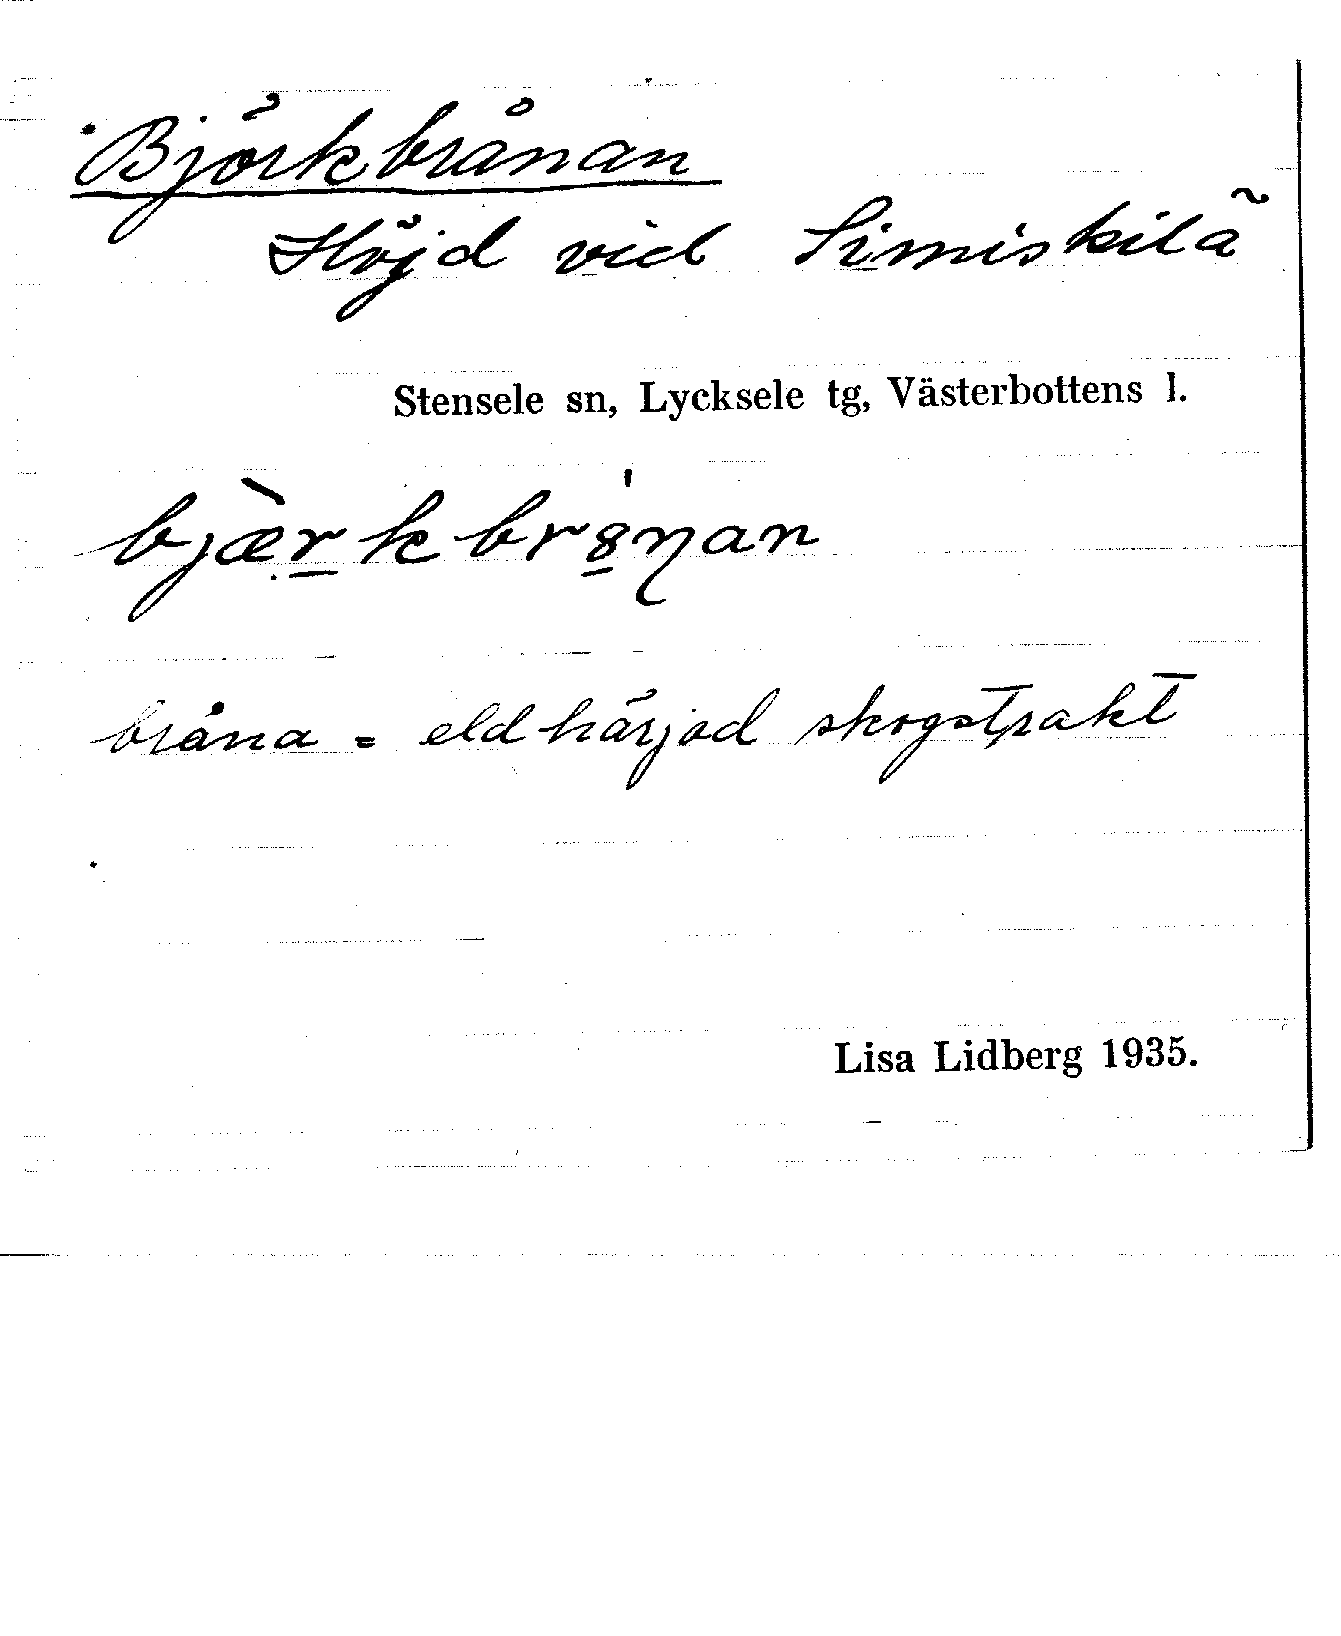 Björkbrånan
Höjd vid Simiskilä
Stensele sn, Lycksele tg, Västerbottens l.
bjæ̀r̲kbr8̲́ŋan
bråna = eldhärjad skogstrakt
Lisa Lidberg 1935.